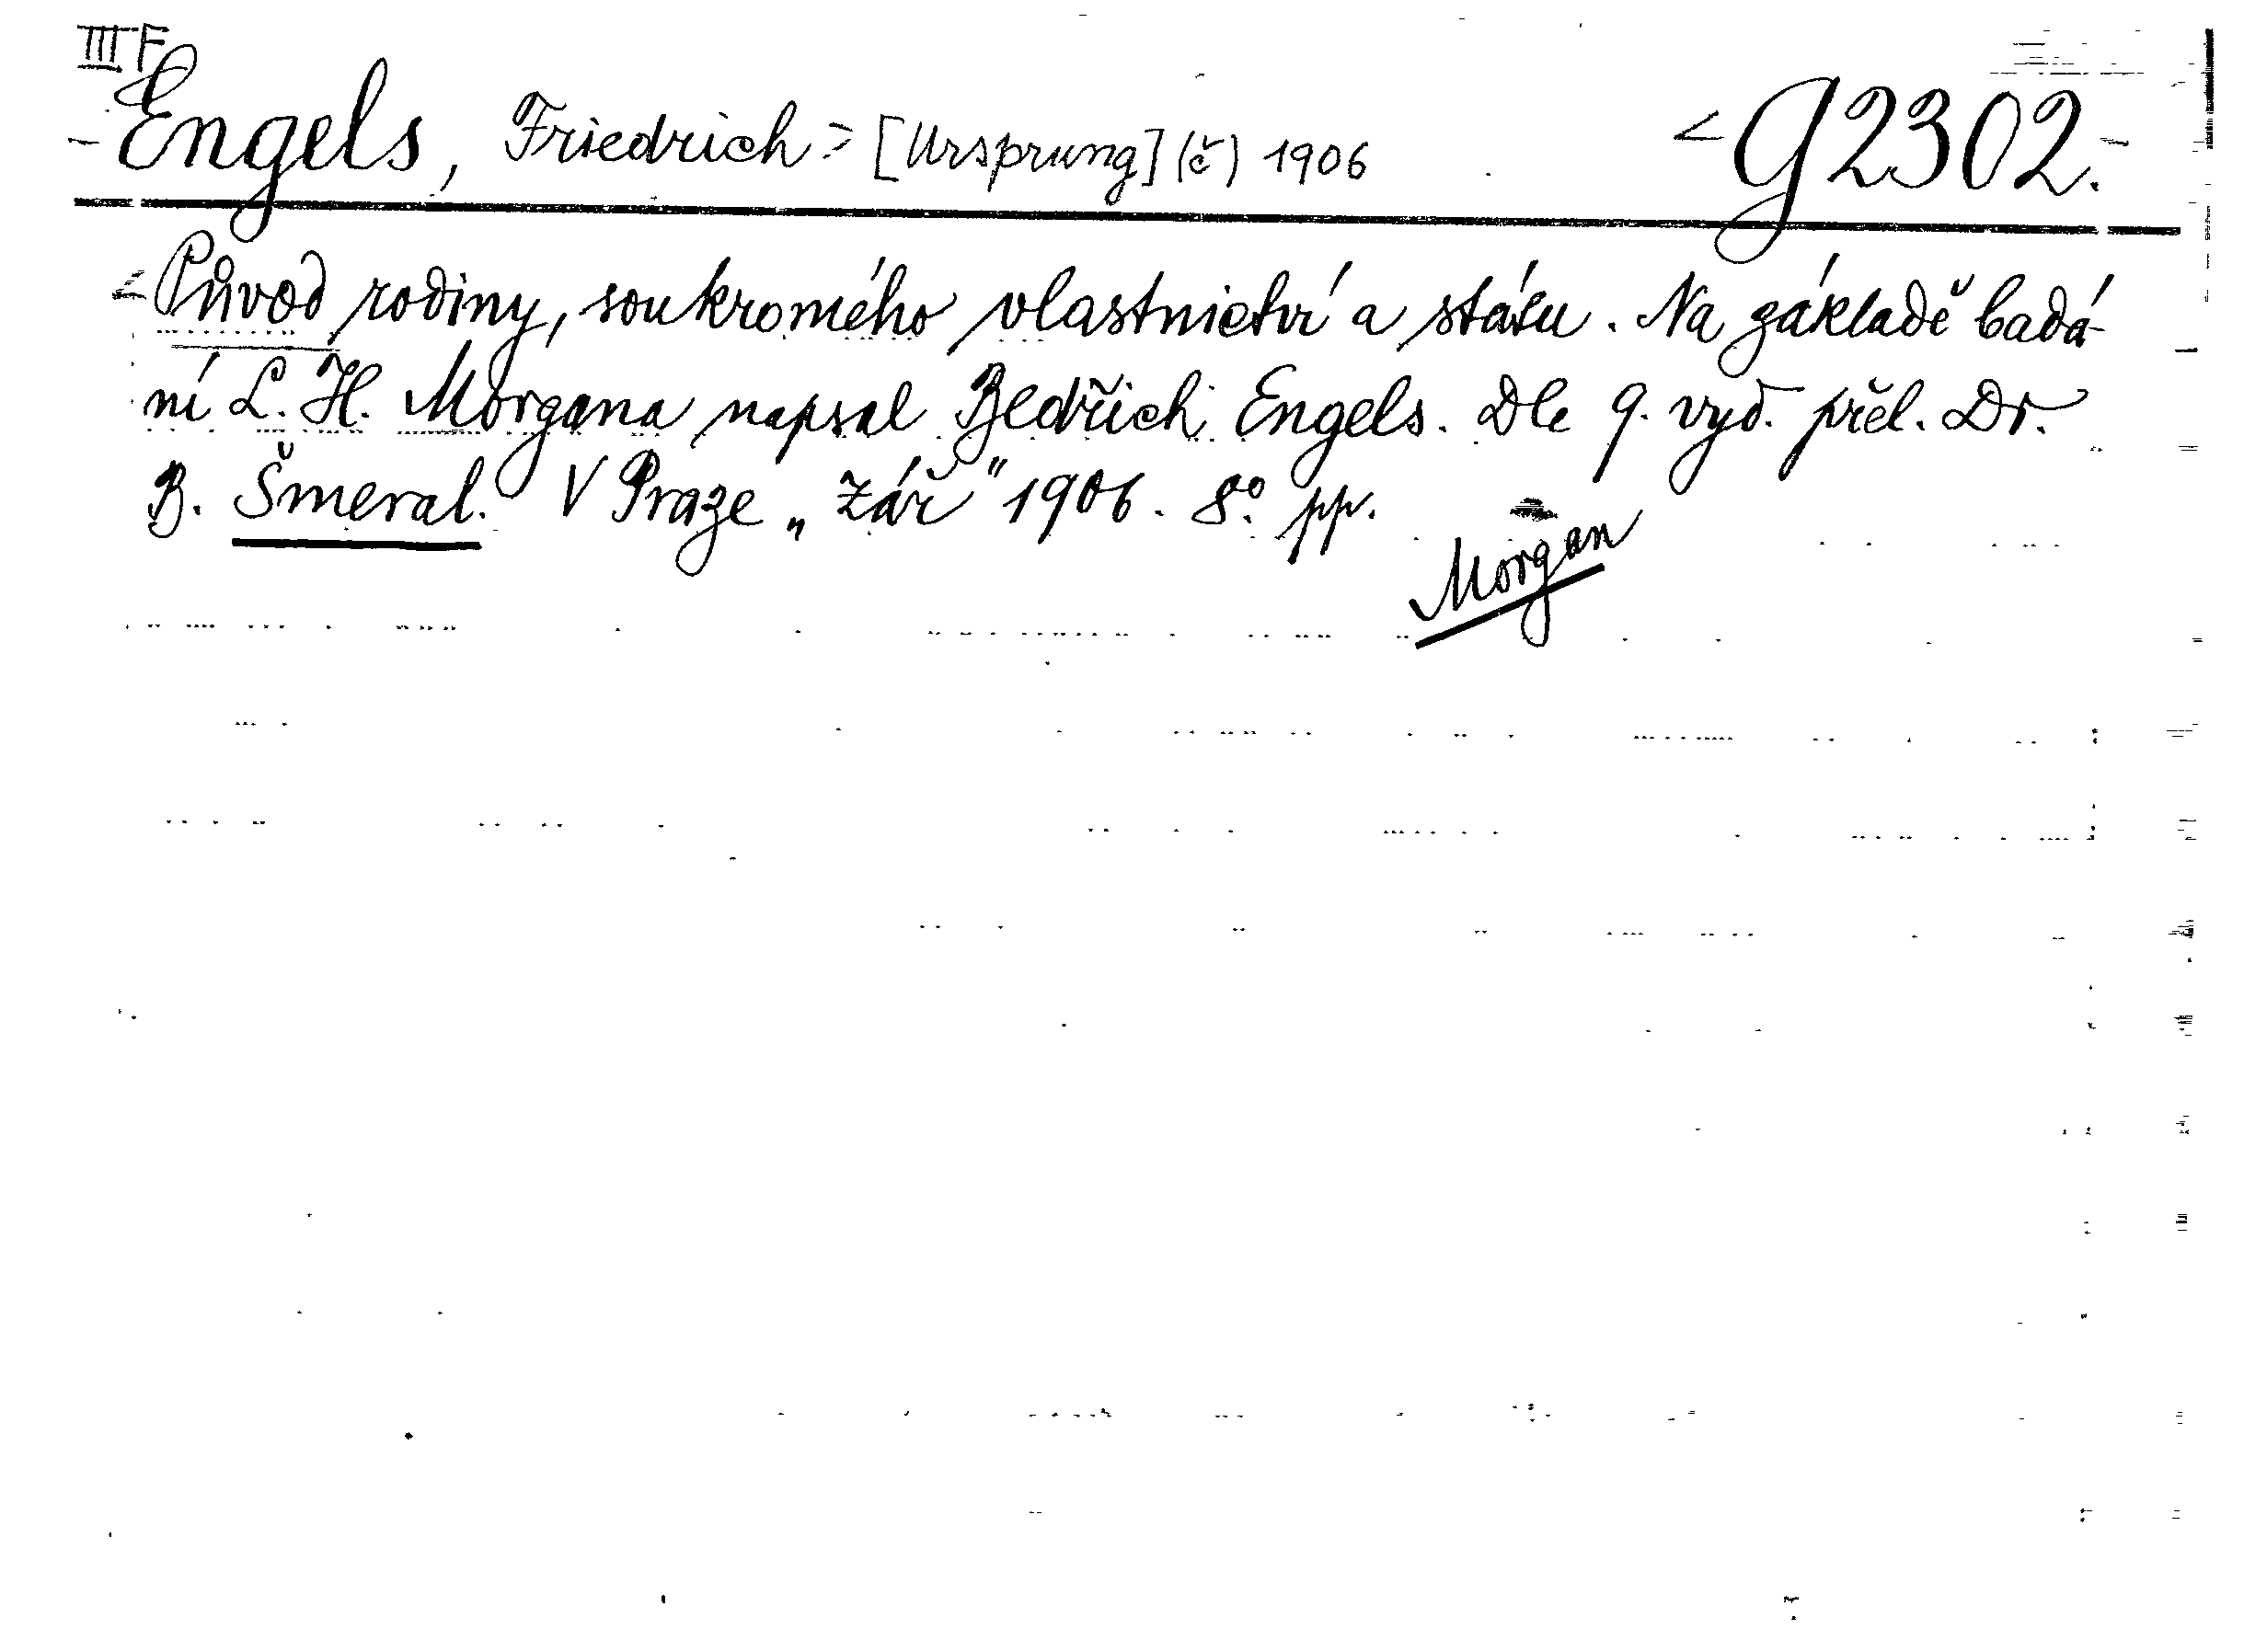 III F
Engels, Friedrich [Ursprung] (č) 1906 G 2302.
Původ rodiny, soukromého vlastnictví a státu. Na základě badá-
ní L. H. Morgana napsal Bedřich Engels. Dle 9. vyd. přel. Dr.
B. Šmeral. V Praze „Zář" 1906. 8° pp.
Morgan